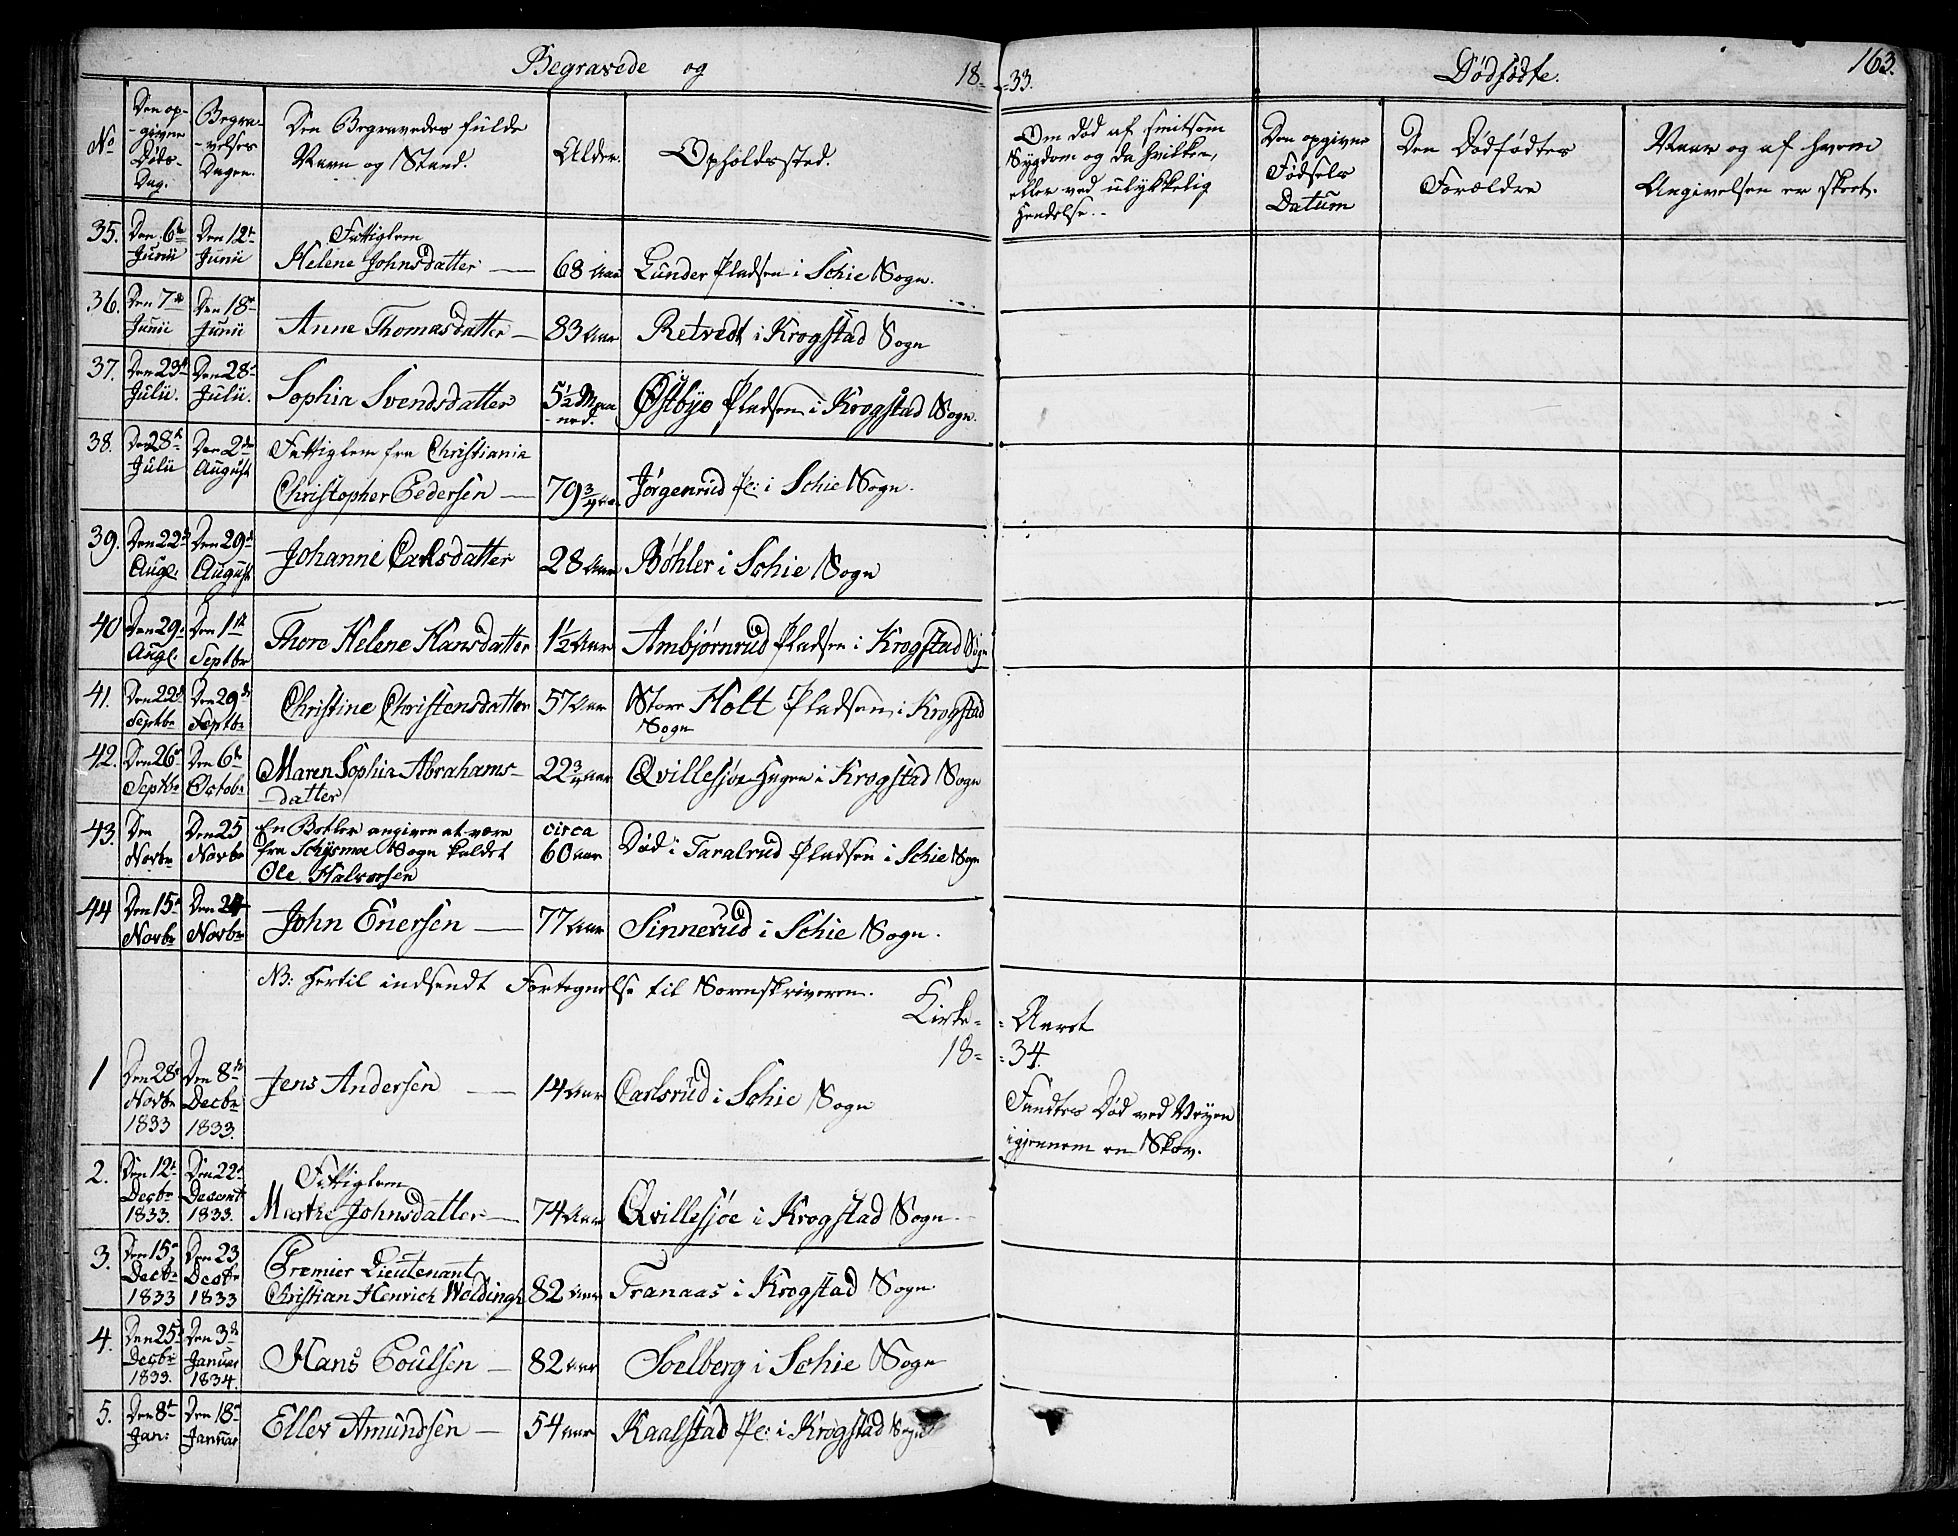 Begravede og 18-33. Dødfødte. 163.
No
Den op-
-givne
Døds-
Dag.
Begra-
-velses
Dagen.
Den Begravedes fulde
Navn og Stand.
Alder.
Opholdssted.
Om død af smitsom
Sygdom og da hvilken,
eller ved ulykkelig
Hendelse.
Den opgivne
Fødsels
Datum
Den Dødfødtes
Forældre
Naar og af hvem
Angivelsen er skeet.
35. Den 6te Den 12te Fattiglem
Junii Junii Helene Johnsdatter — 68 Aar Lunder Pladsen i Schie Sogn.
36. Den 7de Den 18de
Junii Junii Anne Thomasdatter — 83 Aar Retvedt i Krogstad Sogn
37. Den 23de Den 28de
Julii. Julii. Sophia Svendsdatter 5½ Maa-
-ned. Østbye Pladsen i Krogstad Sogn.
38. Den 28de Den 2den Fattiglem fra Christiania
Julii August Christopher Pedersen — 79¾ Aar Jørgenrud Pl: i Schie Sogn.
39. Den 22de Den 29de
Augl. August Johanne Carlsdatter 28 Aar Bøhler i Schie Sogn
40 Den 29de Den 1ste
Augl. Septbr Thore Helene Hansdatter 1½ Aar Ambjørnrud Pladsen i Krogstad Sogn
41. Den 22de Den 29de
Septbr Septbr Christine Christensdatter 57 Aar Store Holt Pladsen i Krogstad
Sogn
42. Den 26de Den 6te
Septbr Octobr Maren Sophia Abrahams-
-datter 22¾ Aar Qvillesjøe Hagen i Krogstad Sogn
43. Den Den 25 En Betler angiven at være circa
Novbr Novbr fra Schysmoe Sogn kaldet 60 Aar Død i Taralrud Pladsen i Schie Sogn
Ole Halvorsen
44 Den 15de Den 24
Novbr Novbr John Enersen — 77 Aar Sinnerud i Schie Sogn.
NB: Hertil indsendt Fortegnelse til Sorenskriveren.
Kirke-Aaret
18-34.
1 Den 28de Den 8de
Novbr Decbr Jens Andersen — 14 Aar Carlsrud i Schie Sogn
1833 1833.
Fandtes Død ved Veyen
igjennem en Skov.
2. Den 12te Den 22de Fattiglem
Decbr Decembr Marthe Johnsdatter — 74 Aar Qvillesjøe i Krogstad Sogn.
1833. 1833.
3. Den 15de Den 23 Premier Lieutenant
Decbr Decbr Christian Henrich Woldingh 82 Aar Tranaas i Krogstad Sogn
1833 1833
4. Den 25de Den 3de
Decbr Januar Hans Poulsen — 82 Aar Soelberg i Schie Sogn
1833. 1834.
5. Den 8de Den 18de
Jan: Januar Ellev Amundsen — 54 Aar Kaalstad Pl: i Krogstad Sogn